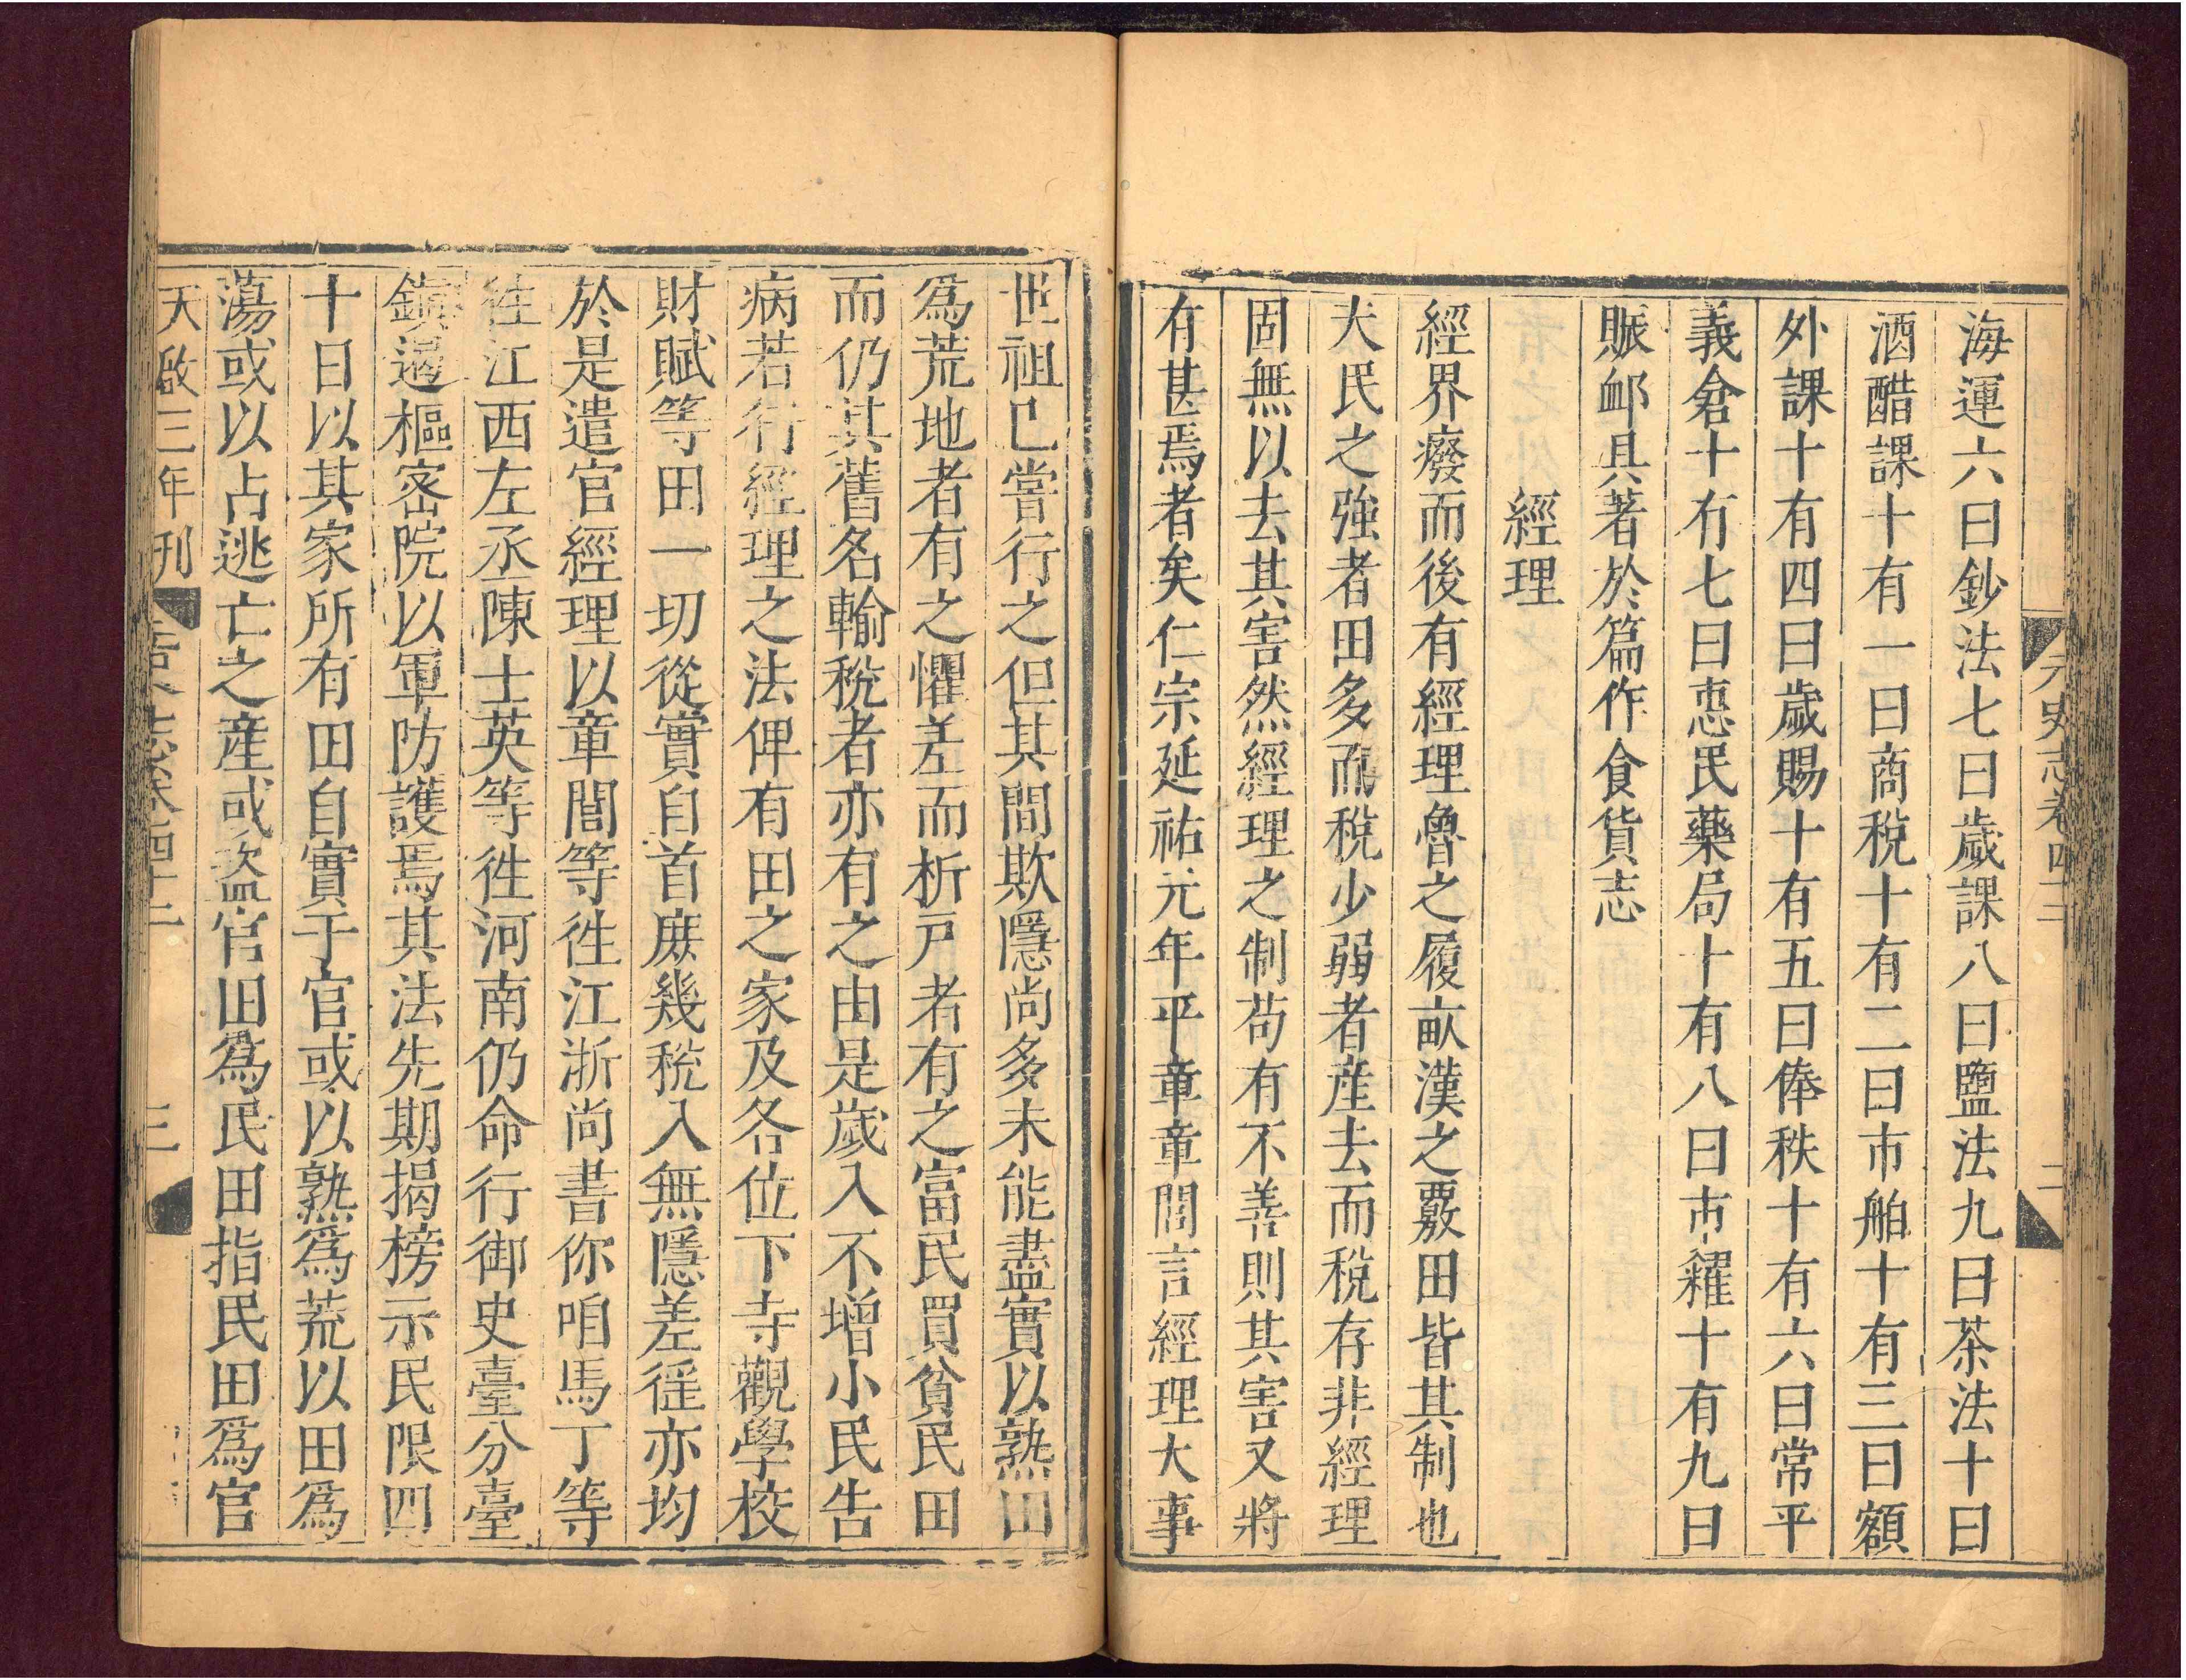 元史志卷四十二 二
海運六曰鈔法七曰歲課八曰鹽法九曰茶法十曰
酒醋課十有一曰商稅十有二曰市舶十有三曰額
外課十有四曰歲賜十有五曰俸秩十有六曰常平
義倉十有七曰惠民藥局十有八曰市糴十有九曰
賑卹具著於篇作食貨志
經理
經界廢而後有經理魯之履畝漢之覈田皆其制也
夫民之強者田多而稅少弱者產去而稅存非經理
固無以去其害然經理之制苟有不善則其害又將
有甚焉者矣仁宗延祐元年平章章閭言經理大事
世祖已嘗行之但其間欺隱尚多未能盡實以熟田
為荒地者有之懼差而析戶者有之富民買貧民田
而仍其舊名輸稅者亦有之由是歲入不增小民告
病若行經理之法俾有田之家及各位下寺觀學校
財賦等田一切從實自首庶幾稅入無隱差徭亦均
於是遣官經理以章閭等徃江浙尚書你咱馬丁等
徃江西左丞陳士英等徃河南仍命行御史臺分臺
鎮遏樞密院以軍防護焉其法先期揭榜示民限四
十日以其家所有田自實于官或以熟為荒以田為
蕩或以占逃亡之產或盜官田為民田指民田為官
天啟三年刊 元史志卷四十二 三